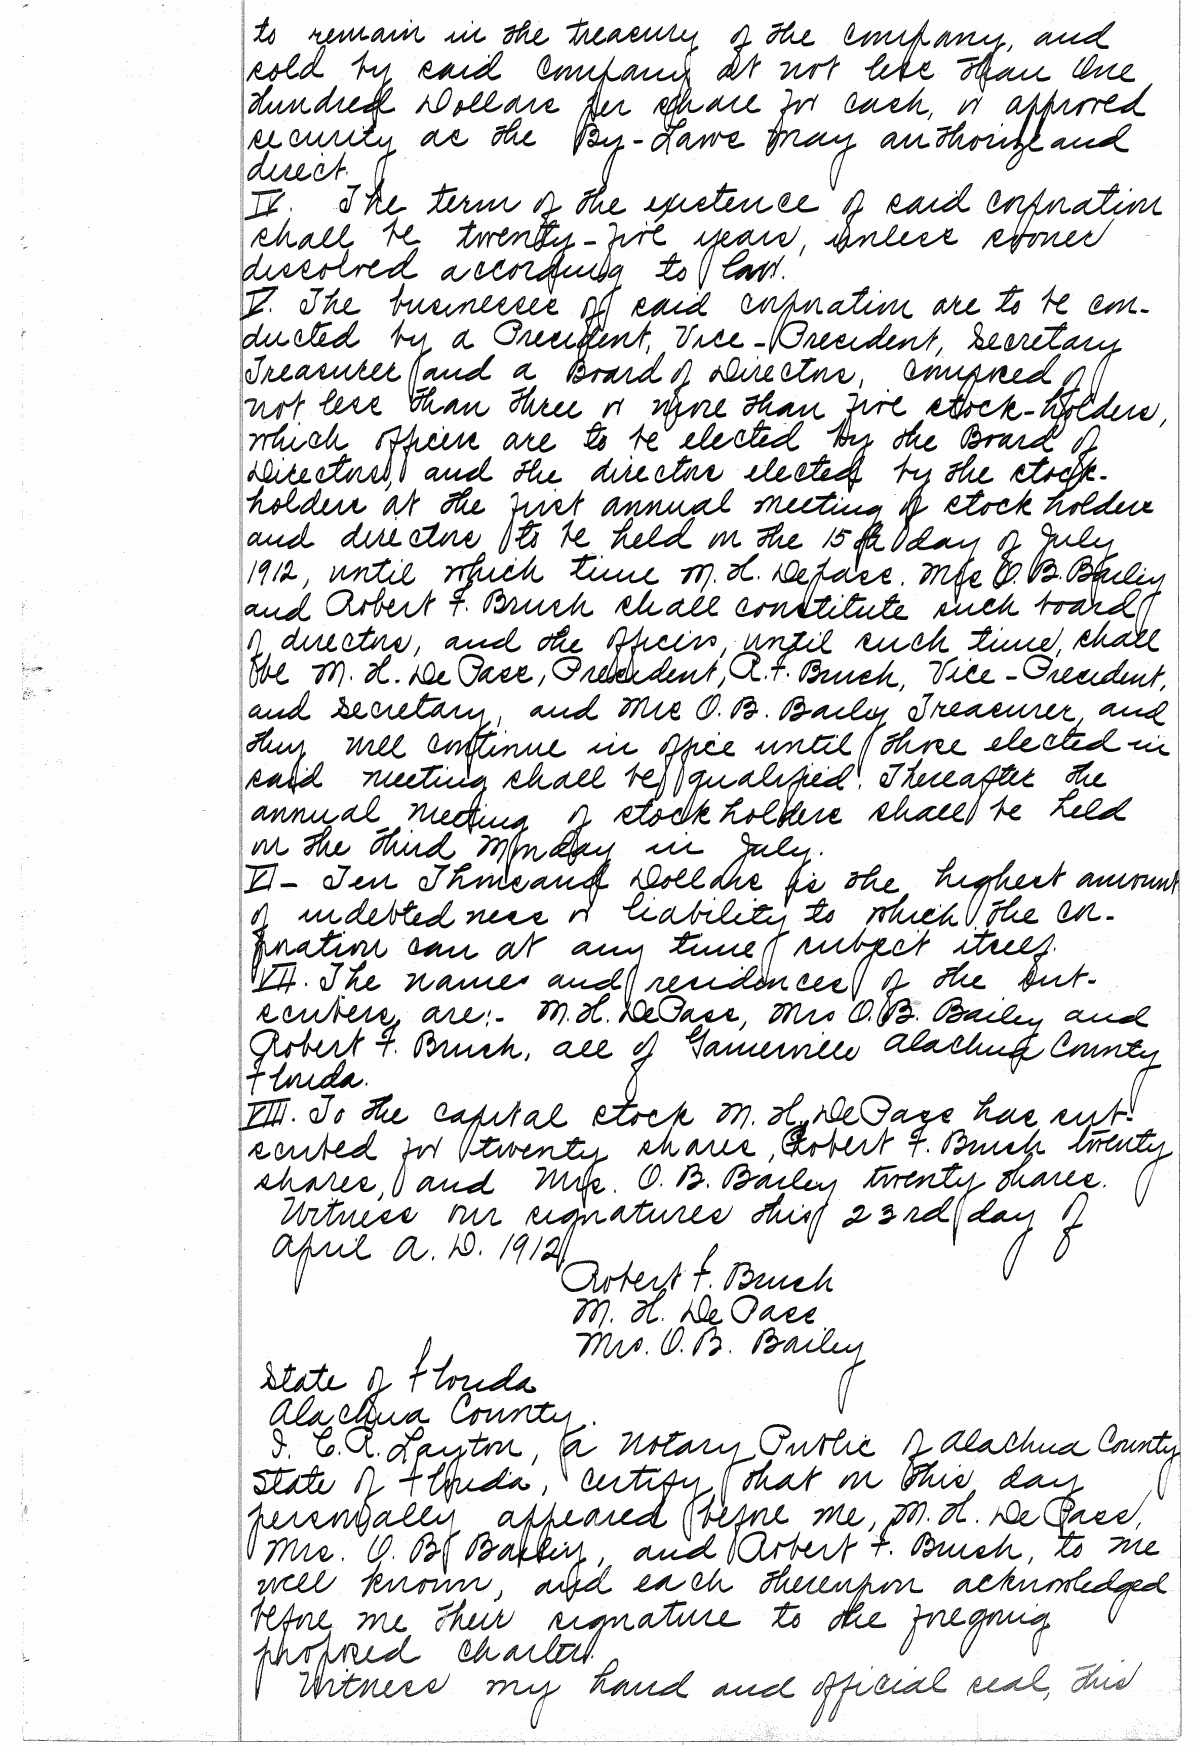 to remain in the treasury of the company, and
sold by said company at not less than One
Hundred Dollars per share for cash, or approved
security as the By-Laws may authorize and
direct.
IV. The term of the existence of said corporation
shall be twenty-five years, unless sooner
dissolved according to law.
V. The businesses of said corporation are to be con-
ducted by a President, Vice-President, Secretary
Treasurer and a Board of Directors, composed of
not less than three or more than five stock-holders,
which officers are to be elected by the Board of
Directors, and the directors elected by the stock-
holders at the first annual meeting of stock holders
and directors to be held on the 15th day of July
1912, until which time M. H. Depass. Mrs O. B. Bailey
and Robert F. Brush shall constitute such board
of directors, and the officers, until such time, shall
be M. H. De Pass, President, R. F. Brush, Vice-President,
and Secretary, and Mrs O. B. Bailey Treasurer, and
they will continue in office until those elected in
said meeting shall be qualified. Thereafter the
annual meeting of stock holders shall be held
on the third Monday in July.
VI- Ten Thousand Dollars is the highest amount
of indebtedness or liability to which the cor-
poration can at any time subject itself.
VII. The names and residences of the sub-
scribers are:- M. H. DePass, Mrs O. B. Bailey and
Robert F. Brush, all of Gainesville Alachua County
Florida.
VIII. To the capital stock M. H. DePass has sub-
scribed for twenty shares, Robert F. Brush twenty
shares, and Mrs. O. B. Bailey twenty shares.
Witness our signatures this 23rd day of
April A. D. 1912.
Robert F. Brush
M. H. De Pass
Mrs. O. B. Bailey
State of Florida
Alachua County.
I. C. R. Layton, a Notary Public of Alachua County
State of Florida, certify that on this day
personally appeared before me, M. H. De Pass,
Mrs. O. B. Bailey, and Robert F. Brush, to me
well known, and each thereupon acknowledged
before me their signature to the foregoing
proposed charter.
Witness my hand and official seal, this